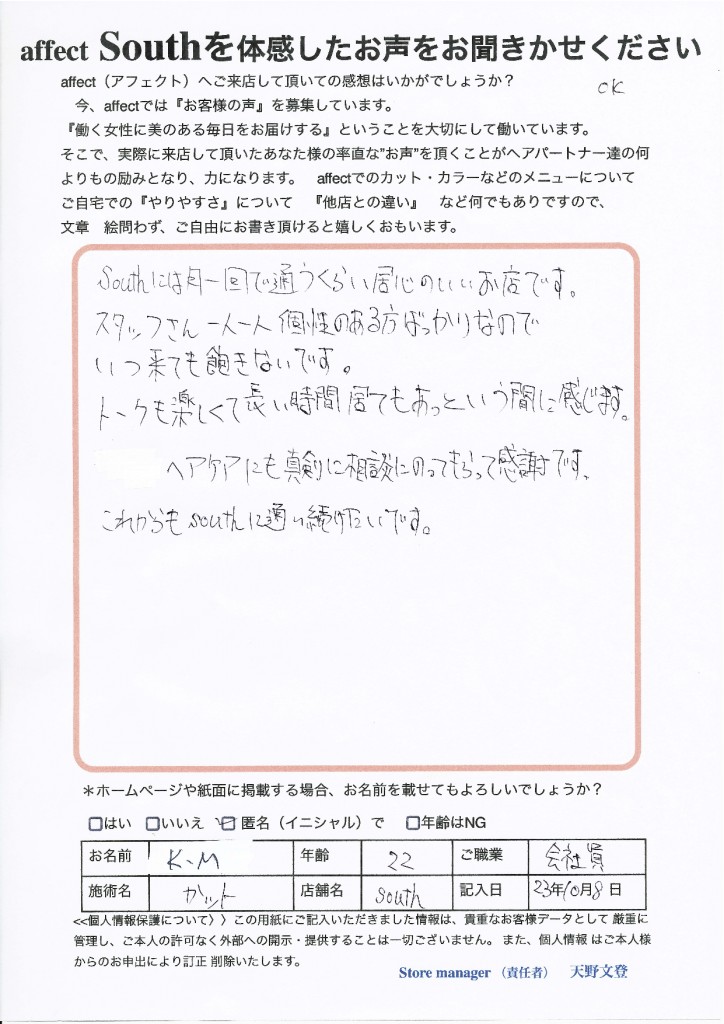 affect Southを体感したお声をお聞きかせください
affect（アフェクト）へご来店して頂いての感想はいかがでしょうか？
OK
今、affectでは『お客様の声』を募集しています。
『働く女性に美のある毎日をお届けする』ということを大切にして働いています。
そこで、実際に来店して頂いたあなた様の率直な”お声”を頂くことがヘアパートナー達の何
よりもの励みとなり、力になります。 affectでのカット・カラーなどのメニューについて
ご自宅での『やりやすさ』について 『他店との違い』 など何でもありですので、
文章 絵問わず、ご自由にお書き頂けると嬉しくおもいます。
Southには月一回で通うくらい居心のいいお店です。
スタッフさん一人一人個性のある方ばっかりなので
いつ来ても飽きないです。
トークも楽しくて長い時間居てもあっという間に感じます。
ヘアケアにも真剣に相談にのってもらって感謝です。
これからもsouthに通い続けたいです。
＊ホームページや紙面に掲載する場合、お名前を載せてもよろしいでしょうか？
□はい □いいえ ☑匿名（イニシャル）で □年齢はNG
お名前 K.M 年齢 22 ご職業 会社員
施術名 カット 店舗名 south 記入日 23年10月8日
<<個人情報保護について〉〉この用紙にご記入いただきました情報は、貴重なお客様データとして 厳重に
管理し、ご本人の許可なく外部への開示・提供することは一切ございません。また、個人情報 はご本人様
からのお申出により訂正 削除いたします。
Store manager （責任者） 天野文登